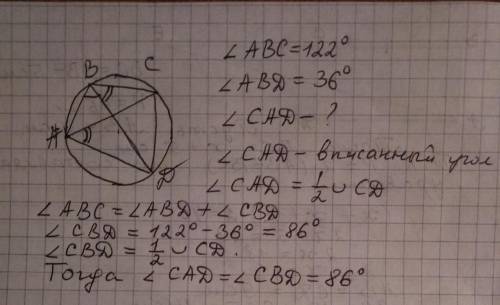 B C
A
D
∠ABC=122°
∠ABD=36°
∠CAD-?
∠CAD-вписанный угол
∠CAD=1/2 ∪CD
∠ABC=∠ABD+∠CBD
∠CBD=122°-36°=86°
∠CBD=1/2 ∪CD.
Тогда ∠CAD=∠CBD=86°